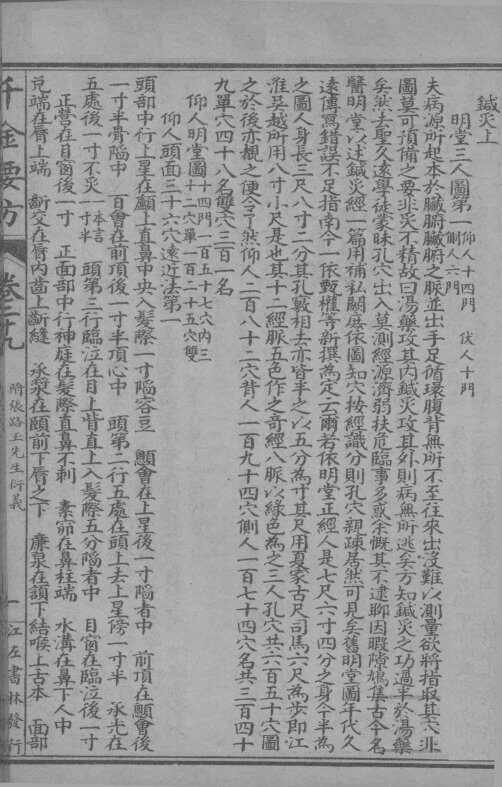 鍼灸上
明堂三人圖第一仰人十四門 伏人十門 側人六門
夫病源所起本於臟腑臟腑之脈並出手足循環腹背無所不至往來出沒難以測量欲將指取其穴非
圖莫可預備之要非灸不精故曰湯藥攻其內鍼灸攻其外則病無所逃矣方知鍼灸之功過半於湯藥
矣然去聖久遠學徒蒙昧孔穴出入莫測經源濟弱扶危臨事多惑余慨其不逮聊因暇隙鳩集古今名
醫明堂以述鍼灸經一篇用補私闕庶依圖知穴按經識分則孔穴親疎居然可見矣舊明堂圖年代久
遠傳寫錯誤不足指南今一依甄權等新撰為定云爾若依明堂正經人是七尺六寸四分之身今半為
之圖人身長三尺八寸二分其孔竅相去亦皆半之以五分為寸其尺用夏家古尺司馬六尺為步即江
淮吳越所用八寸小尺是也其十二經脈五色作之奇經八脈以綠色為之三人孔穴共六百五十穴圖
之於後亦覩之便令了然仰人二百八十二穴背人一百九十四穴側人一百七十四穴名共三百四十
九單穴四十八名雙穴三百一名
仰人明堂圖十四門一百五十七穴內三十二穴單一百二十五穴雙
仰人頭面三十六穴遠近法第一
頭部中行上星在顱上直鼻中央入髮際一寸陷容豆 顖會在上星後一寸陷者中 前頂在顖會後
一寸半骨陷中 百會在前頂後一寸半頂心中 頭第二行五處在頭上去上星傍一寸半 承光在
五處後一寸不灸一本言一寸半 頭第三行臨泣在目上眥直上入髮際五分陷者中 目窗在臨泣後一寸
正營在目窗後一寸 正面部中行神庭在髮際直鼻不刺 素窌在鼻柱端 水溝在鼻下人中
兌端在脣上端 齗交在脣內齒上齗縫 承漿在頤前下脣之下 廉泉在頷下結喉上舌本 面部
千金要方
卷二十九
附張路玉先生衍義
一
江左書林發行